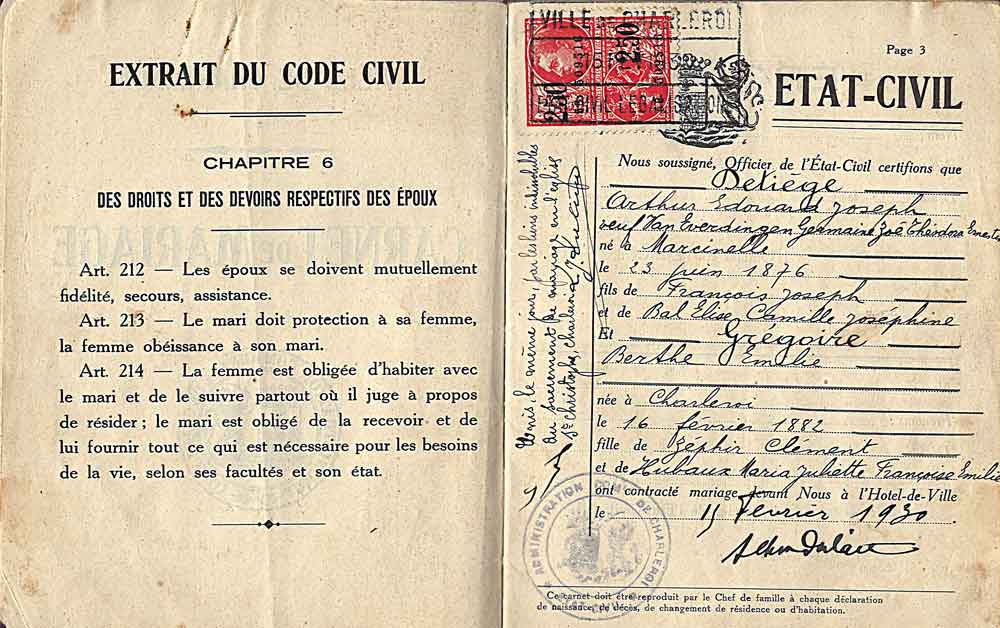 EXTRAIT DU CODE CIVIL
CHAPITRE 6
DES DROITS ET DES DEVOIRS RESPECTIFS DES ÉPOUX
Art. 212 — Les époux se doivent mutuellement
fidélité, secours, assistance.
Art. 213 — Le mari doit protection à sa femme,
la femme obéissance à son mari.
Art. 214 — La femme est obligée d'habiter avec
le mari et de le suivre partout où il juge à propos
de résider ; le mari est obligé de la recevoir et de
lui fournir tout ce qui est nécessaire pour les besoins
de la vie, selon ses facultés et son état.
VILLE DE CHARLEROI
2.50
2.50
Page 3
ETAT-CIVIL
Unis, le même jour, par les liens indissolubles
du sacrement de mariage en l'église
St Christophe, Charleroi
Nous soussigné, Officier de l'État-Civil certifions que
Detiège
Arthur Edouard Joseph
veuf Van Everdingen Germaine Zoë Théodora Ernest
né à Marcinelle
le 23 juin 1876
fils de François Joseph
et de Bal Elise Camille Joséphine
Et Grégoire
Berthe Emilie
née à Charleroi
le 16 février 1882
fille de Zéphir Clément
et de Hubaux Maria Juliette Françoise Emilie
ont contracté mariage devant Nous à l'Hotel-de-Ville
le 15 Février 1930.
ADMINISTRATION COMM. DE CHARLEROI
Ce carnet doit être reproduit par le Chef de famille à chaque déclaration
de naissance, de décès, de changement de résidence ou d'habitation.